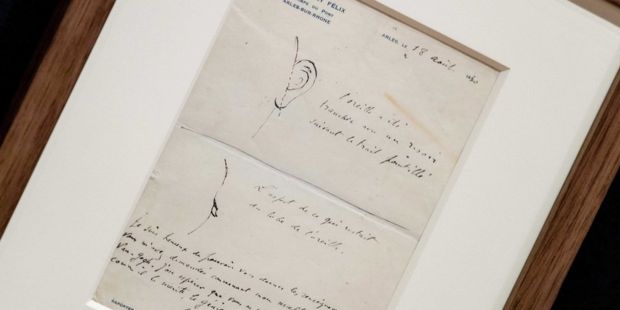 Y FÉLIX
du Pont
ARLES-SUR-RHONE
ARLES, LE 18 août
l'oreille a été
tranchée avec un rasoir
suivant le trait pointillé
L'aspect de ce qui restait
du lobe de l'oreille.
Je suis heureux de pouvoir vous donner les
vous m'avez demandés concernant mon
Van-Gogh. J'espère que vous
comme il le mérite, le